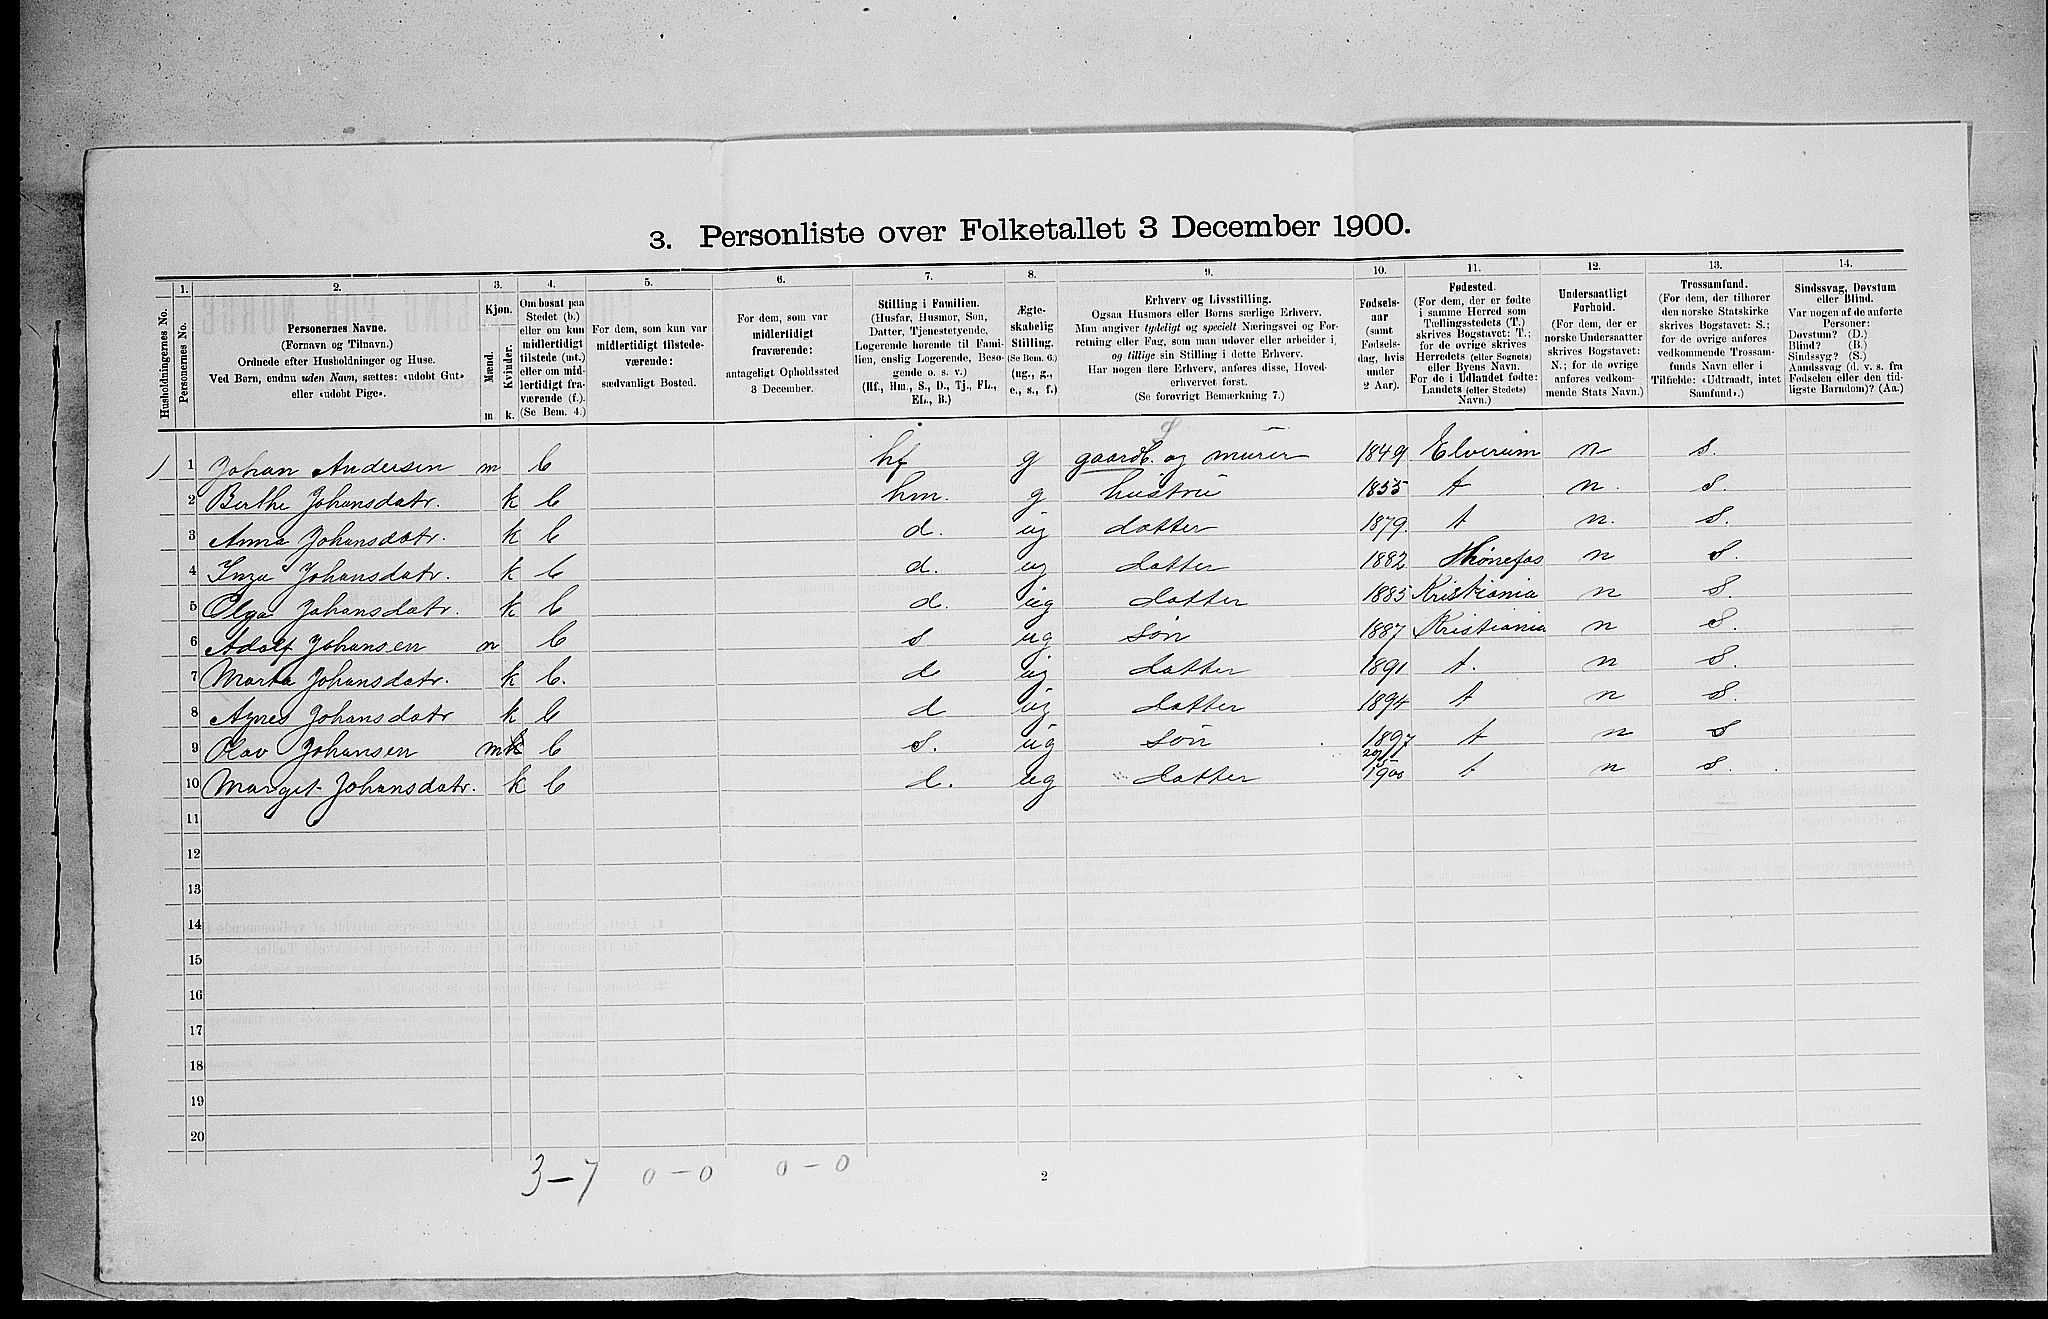 3. Personliste over Folketallet 3 December 1900.
1. 2. 3. 4. 5. 6. 7. 8. 9. 10. 11. 12. 13. 14.
Husholdningernes No.
Personernes No.
Personernes Navne.
(Fornavn og Tilnavn.)
Ordnede efter Husholdninger og Huse.
Ved Børn, endnu uden Navn, sættes: «udøbt Gut»
eller «udøbt Pige».
Kjøn.
Mænd.
Kvinder.
m k.
Om bosat paa
Stedet (b.)
eller om kun
midlertidigt
tilstede (mt.)
eller om mid-
lertidigt fra-
værende (f.).
(Se Bem. 4.)
For dem, som kun var
midlertidigt tilstede-
værende:
sædvanligt Bosted.
For dem, som var
midlertidigt
fraværende:
antageligt Opholdssted
3 December.
Stilling i Familien.
(Husfar, Husmor, Søn,
Datter, Tjenestetyende,
Logerende hørende til Fami-
lien, enslig Logerende, Besø-
gende o. s. v.)
(Hf., Hm., S., D., Tj., FL.,
EL., B.)
Ægte-
skabelig
Stilling.
(Se Bem. 6.)
(ug., g.,
e., s., f.)
Erhverv og Livsstilling.
Ogsaa Husmors eller Børns særlige Erhverv.
Man angiver tydeligt og specielt Næringsvei og For-
retning eller Fag, som man udøver eller arbeider i,
og tillige sin Stilling i dette Erhverv.
Har nogen flere Erhverv, anføres disse, Hoved-
erhvervet først.
(Se forøvrigt Bemærkning 7.)
Fødsels-
aar
(samt
Fødsels-
dag, hvis
under
2 Aar).
Fødested.
(For dem, der er fødte
i samme Herred som
Tællingsstedets (T.)
skrives Bogstavet: T.;
for de øvrige skrives
Herredets (eller Sognets)
eller Byens Navn.
For de i Udlandet fødte:
Landets (eller Stedets)
Navn.)
Undersaatligt
Forhold.
(For dem, der er
norske Undersaatter
skrives Bogstavet:
N.; for de øvrige
anføres vedkom-
mende Stats Navn.)
Trossamfund.
(For dem, der tilhører
den norske Statskirke
skrives Bogstavet: S.;
for de øvrige anføres
vedkommende Trossam-
funds Navn eller i
Tilfælde: «Udtraadt, intet
Samfund».)
Sindssvag, Døvstum
eller Blind.
Var nogen af de anførte
Personer:
Døvstum? (D.)
Blind? (B.)
Sindssyg? (S.)
Aandssvag (d. v. s. fra
Fødselen eller den tid-
ligste Barndom)? (Aa.)
1 Johan Andersen m b hf g gaardb. og murer 1849 Elverum n s.
2 Berthe Johansdatr. k b hm. g hustru 1855 t n. s.
3 Anna Johansdatr. k b d. ug datter 1879. t n. s.
4 Inga Johansdatr. k b d. ug datter 1882 Hønefos n s.
5 Olga Johansdatr. k b d. ug datter 1885 Kristiania n s.
6 Adolf Johansen m b s. ug søn 1887 Kristiania n s.
7 Marta Johansdatr. k b. d ug datter 1891 t. n s.
8 Agnes Johansdatr k b d ug datter 1894 t n s.
9 Olav Johansen m b s. ug søn 1897 t n s
10 Marget Johansdatr. k b d. ug datter 1900 t n s.
11
12
13
14
15
16
17
18
19
20
3-7 0-0 0-0
2